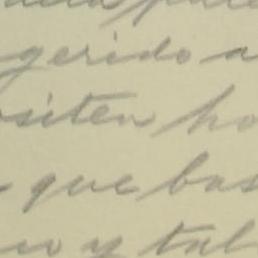 gerido a
siten ho
que bas
o y tal